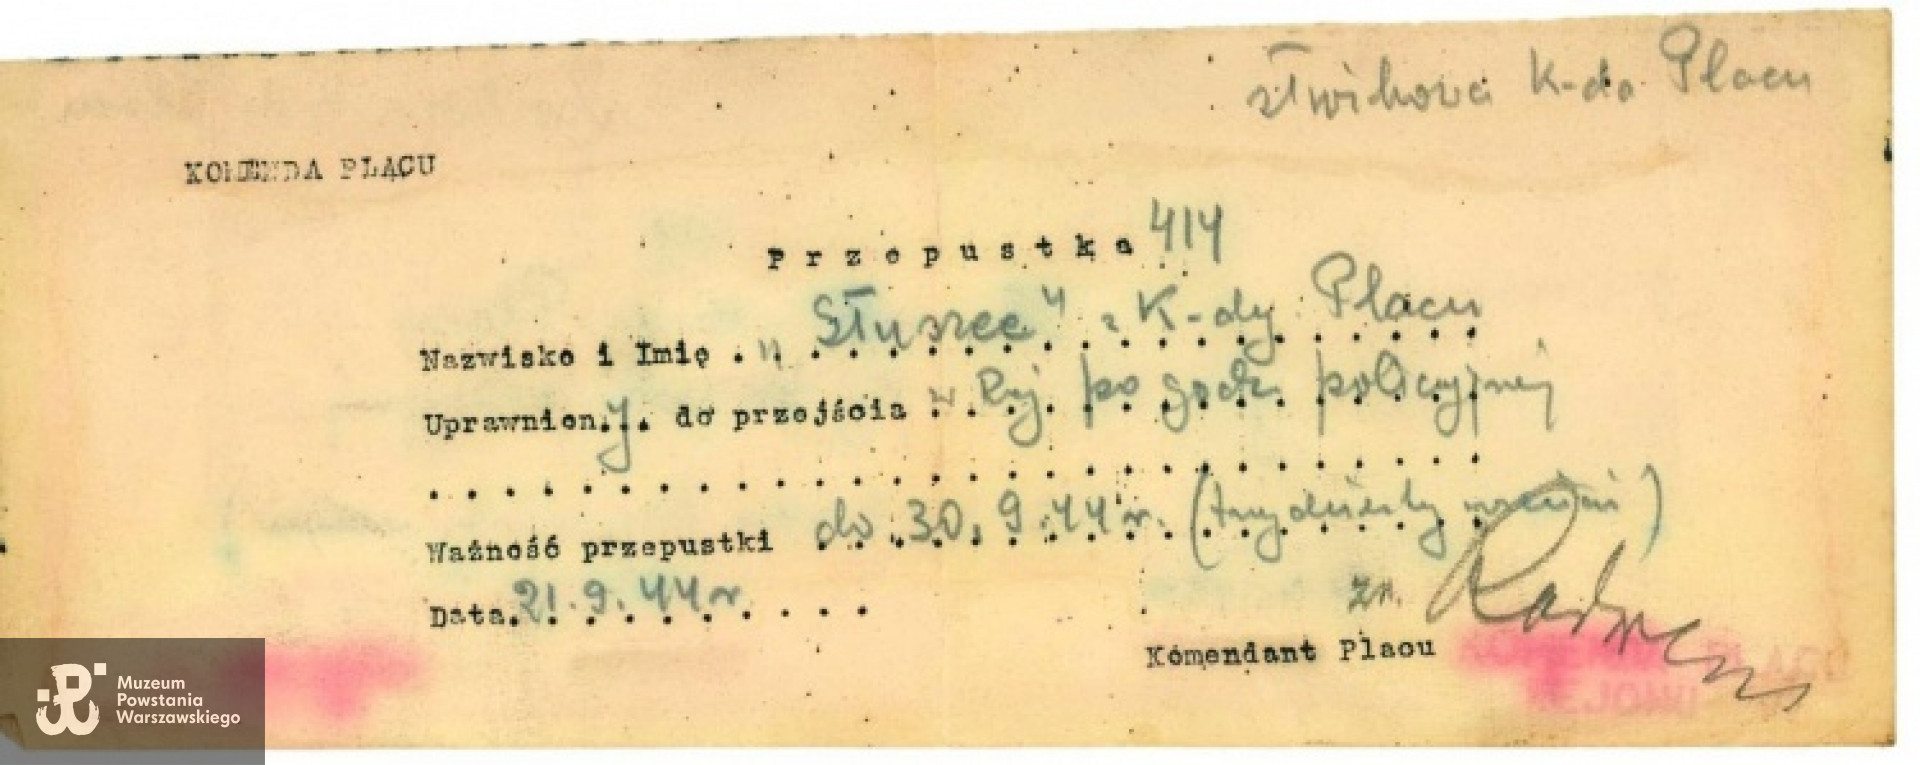 K-da Placu
KOMENDA PLACU
Przepustka 414
Nazwisko i Imię . " . . . . " z K-dy Placu
Uprawnien.y. do przejścia w Rej po godz. policyjnej
. . . . . . . . . . . . . . . . . . . . . . . . . . . .
Ważność przepustki do 30.9.44 r. (trzydziesty wrzesień)
Data. 21.9.44 r
Komendant Placu
Muzeum
Powstania
Warszawskiego